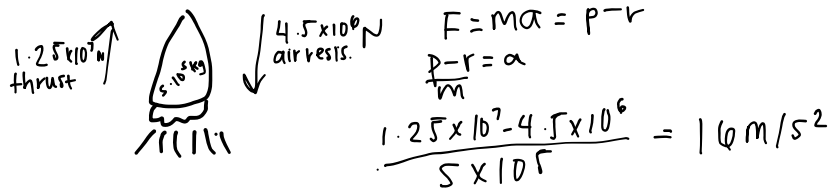 1.25x10⁷N
thrust
5.10⁵kg
4.5x10⁶N
air resis.
F=ma=p-r
p-r/m=a
1.25x10⁷-4.5x10⁶/5x10⁵ = 16m/s²